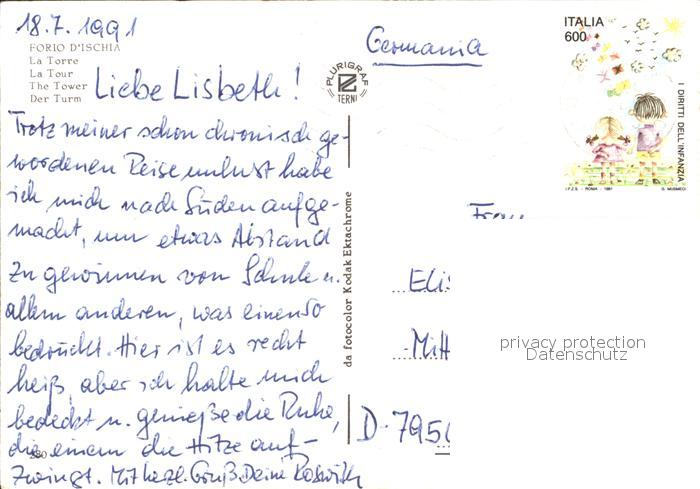 18.7.1991
FORIO D'ISCHIA
La Torre
La Tour
The Tower
Der Turm
Liebe Lisbeth!
Trotz meiner schon chronisch ge-
wordenen Reiseunlust habe
ich mich nach Süden aufge-
macht, um etwas Abstand
zu gewinnen von Schule u.
allem anderen, was einen so
bedrückt. Hier ist es recht
heiß, aber ich halte mich
bedeckt u. genieße die Ruhe,
die einem die Hitze auf-
zwingt. Mit herzl. Gruß Deine Roswith
PLURIGRAF
TERNI
da fotocolor Kodak Ektachrome
Germania
ITALIA
600
I DIRITTI DELL'INFANZIA
I.P.Z.S. - ROMA - 1991
G. MUSMECI
Frau
Elis
Mitt
D-795
privacy protection
Datenschutz